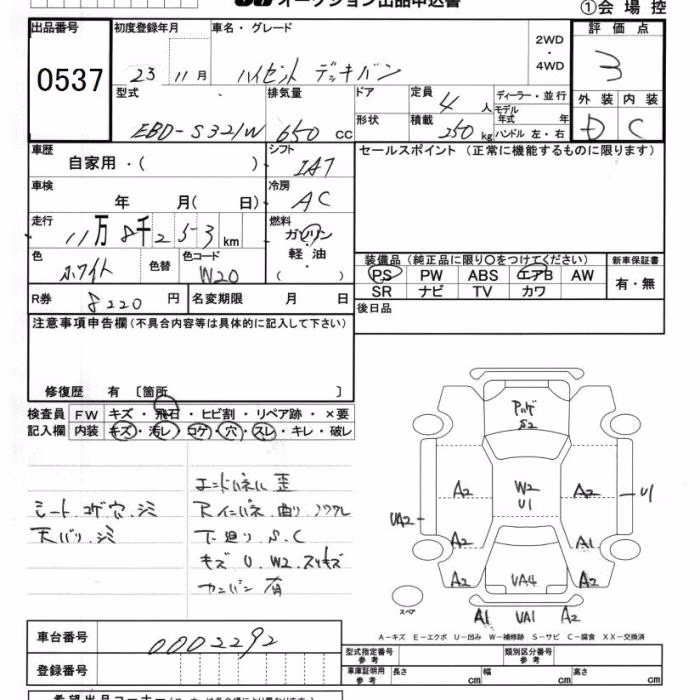 オークション出品申込書
①会場控
出品番号
初度登録年月
車名・グレード
2WD
・
4WD
評価点
0537
23 11月
ハイゼット デッキバン
3
型式
排気量
ドア
定員 4人
ディーラー・並行
モデル年式 年
外装 内装
EBD-S321W
650 cc
形状
積載 250 kg
ハンドル 左・右
D C
車歴
自家用・( )
シフト
IAT
セールスポイント (正常に機能するものに限ります)
車検
年 月( 日)
冷房
AC
走行
11万8千253km
燃料
ガソリン
軽油
( )
色
ホワイト
色替
色コード
W20
装備品(純正品に限り○をつけてください)
新車保証書
PS PW ABS エアB AW
SR ナビ TV カワ
有・無
R券 8220円
名変期限 月 日
後日品
注意事項申告欄(不具合内容等は具体的に記入して下さい)
修復歴 有 〔箇所 〕
検査員 FW キズ・飛石・ヒビ割・リペア跡・×要
記入欄 内装 キズ・汚レ・コゲ・穴・スレ・キレ・破レ
エンドパネル 歪
シートコゲ穴.シミ
天バリ.シミ
下廻り S.C
キズ U.W2.スリキズ
カンバン 有
S2
A2
W2
U1
A2
U1
UA2
A2
A1
A2
UA4
A2
スペア
A1 UA1 A2
A-キズ E-エクボ U-凹み W-補修跡 S-サビ C-腐食 XX-交換済
車台番号
0002292
登録番号
型式指定番号
参考
類別区分番号
参考
車庫証明用
参考
長さ cm
幅 cm
高さ cm